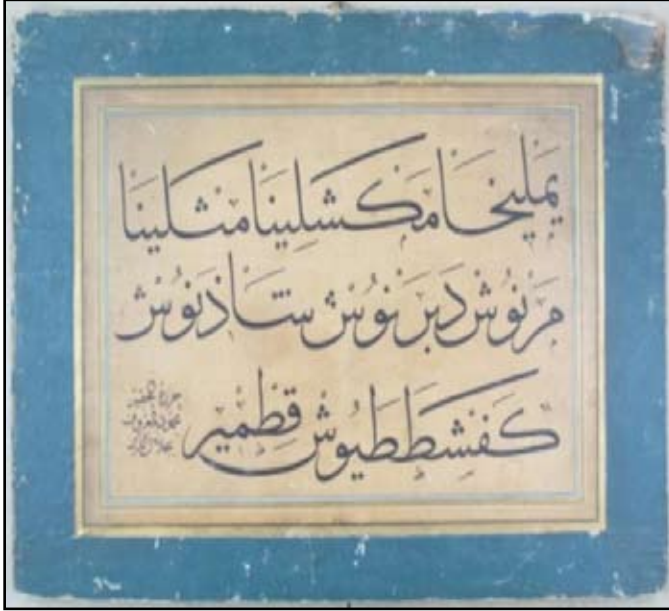 يَمْلِيخَا مَكْسَلِينَا مَثَلِينَا
مَرْنُوش دَبَرْنُوش شَاذَنُوش
كَفَشَطَطَيُوش قِطْمِير